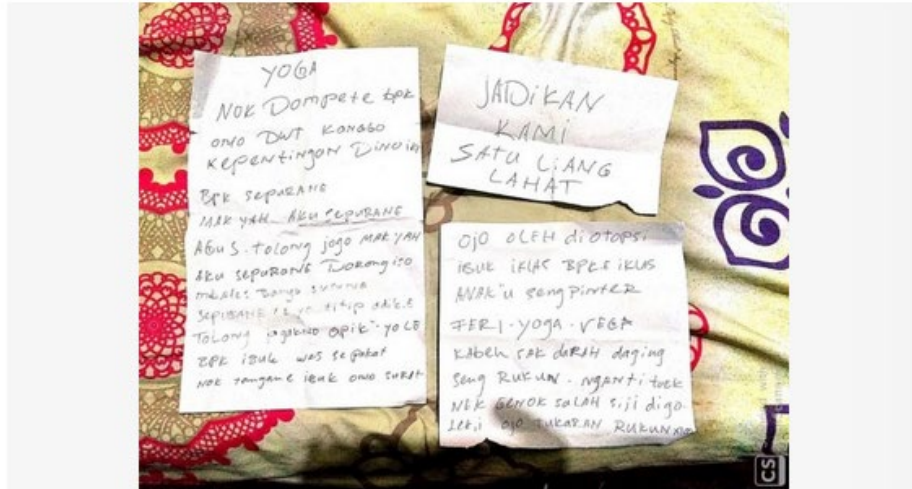 YOGA
NOK DOMPETE BPK
ONO DWT KANGGO
KEPENTINGAN DINO iki
BPK SEPURANE
MAK YAH AKU SEPURANE
AGUS. TOLONG jogo MAK YAH
AKU SEPURANE DORONG iso
mbales
titip adik.E
TOLONG OPIK YO LE
BPK iBUK WES SEPAKAT
NOK iBUK ONO SURAT
JADiKAN
KAMi
SATU LiANG
LAHAT
OJO OLEH diOTOPSi
iBUK iKLAS BPKE iKLAS
ANAK'u SENG PiNTER
FERi. YOGA. VEGA
KABEH SAK DARAH DAGiNG
SENG RUKUN. NGANTi TUEK
NEK SALAH SiJi diGO
LEKi OJO TUKARAN RUKUN
CS